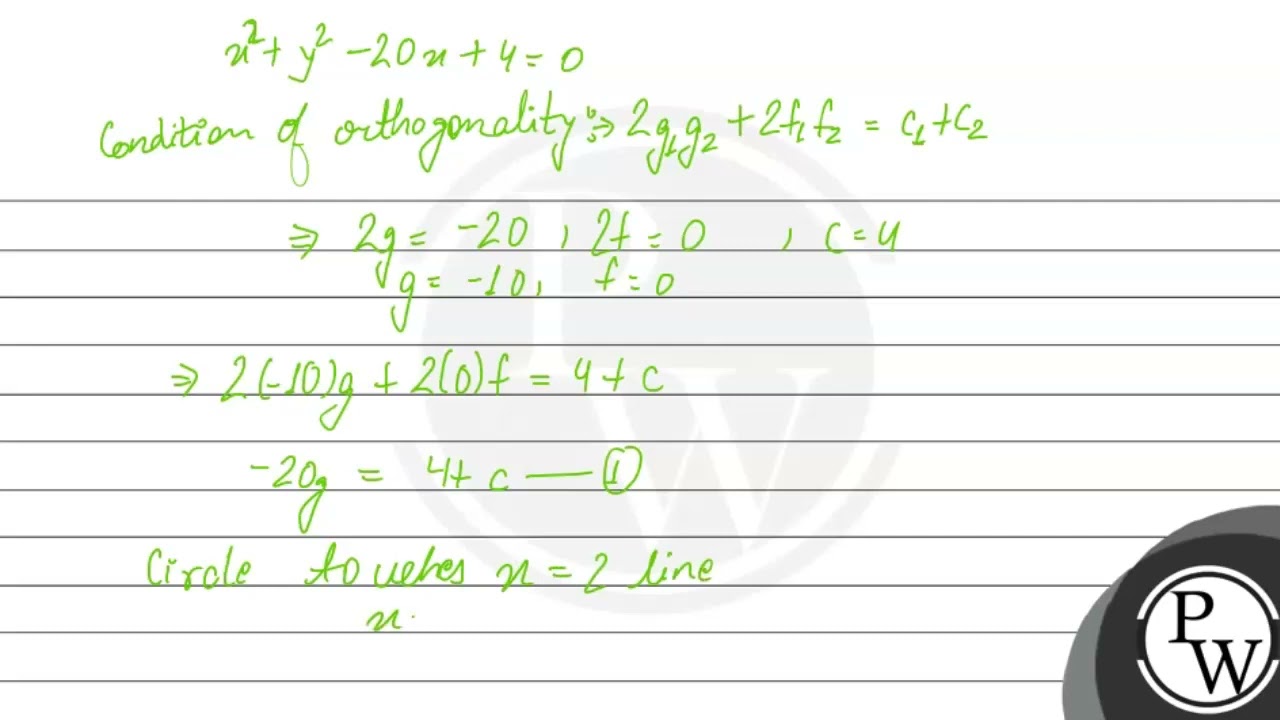 x² + y² - 20x + 4 = 0
Condition of orthogonality :⇒ 2g₁g₂ + 2f₁f₂ = c₁ + c₂
⇒ 2g = -20 , 2f = 0 , c = 4
g = -10, f = 0
⇒ 2(-10)g + 2(0)f = 4 + c
-20g = 4 + c — ①
Circle touches x = 2 line
x
PW
PW